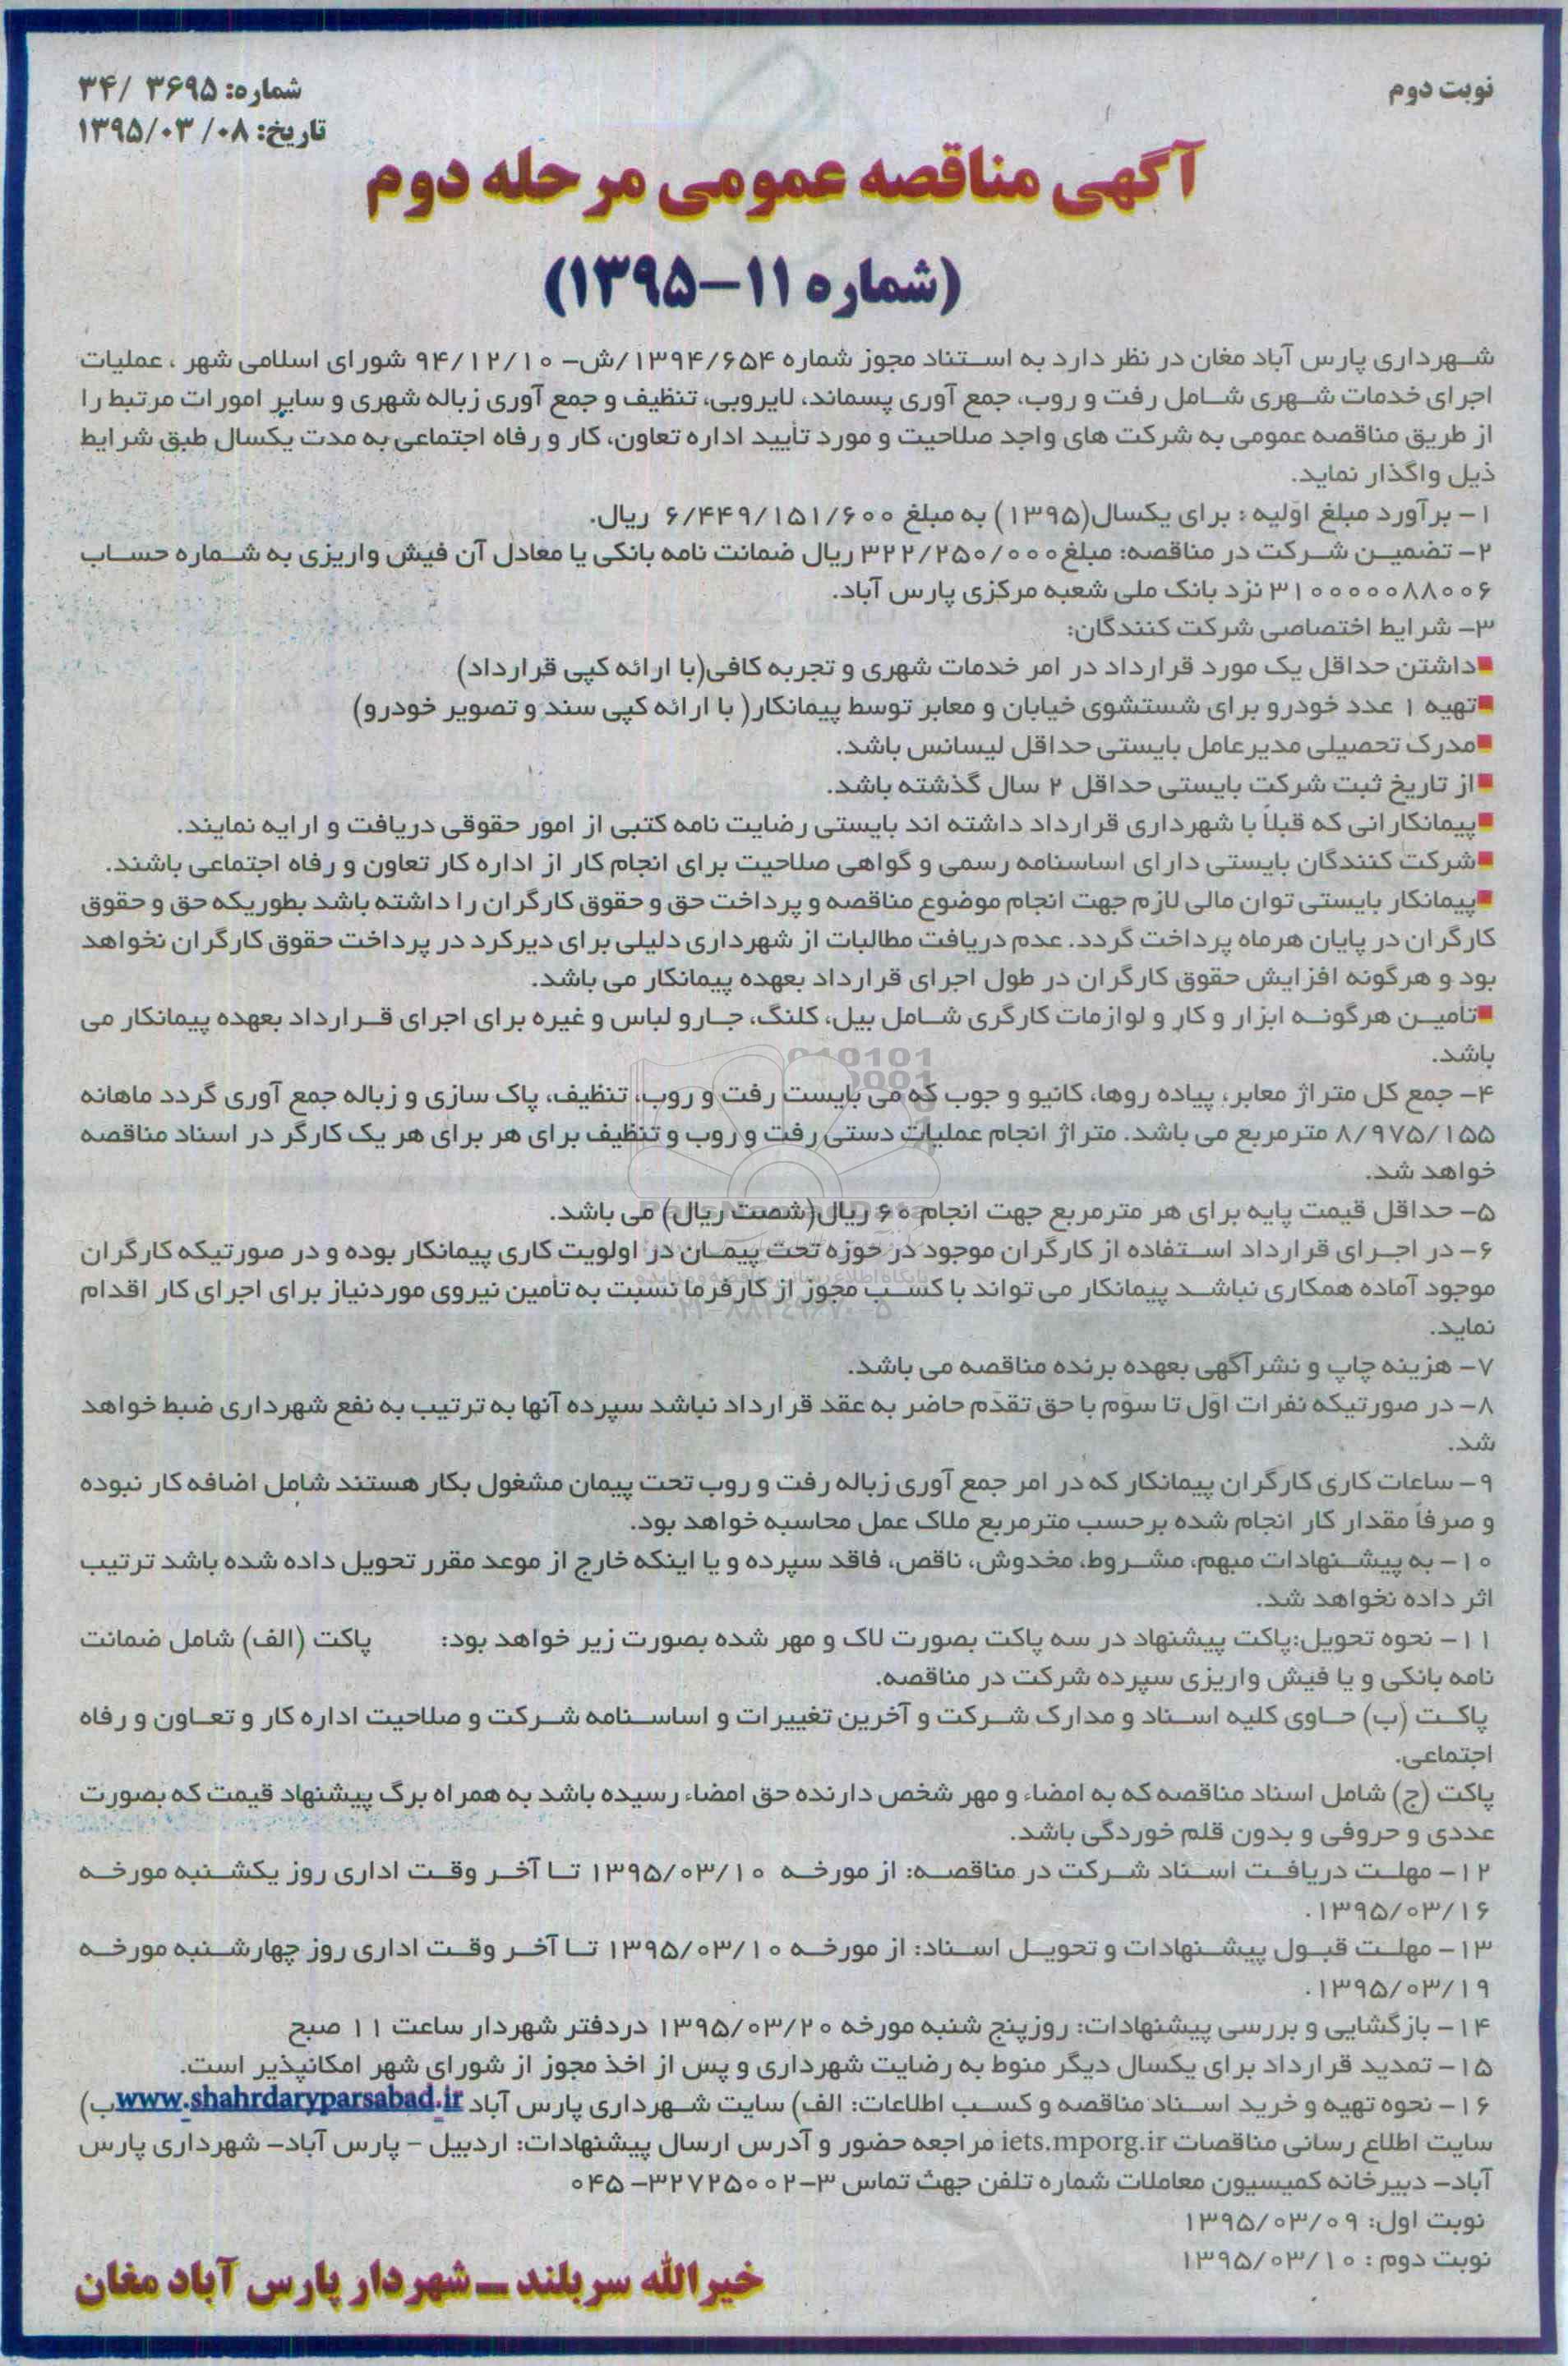 نوبت دوم
شماره: ۳۶۹۵ /۳۴
تاریخ: ۰۸/ ۰۳/۱۳۹۵
آگهی مناقصه عمومی مرحله دوم
(شماره ۱۱–۱۳۹۵)
شهرداری پارس آباد مغان در نظر دارد به استناد مجوز شماره ۱۳۹۴/۶۵۴/ش– ۹۴/۱۲/۱۰ شورای اسلامی شهر ، عملیات
اجرای خدمات شهری شامل رفت و روب، جمع آوری پسماند، لایروبی، تنظیف و جمع آوری زباله شهری و سایر امورات مرتبط را
از طریق مناقصه عمومی به شرکت های واجد صلاحیت و مورد تأیید اداره تعاون، کار و رفاه اجتماعی به مدت یکسال طبق شرایط
ذیل واگذار نماید.
۱– برآورد مبلغ اوّلیه : برای یکسال(۱۳۹۵) به مبلغ ۶/۴۴۹/۱۵۱/۶۰۰ ریال.
۲– تضمین شرکت در مناقصه: مبلغ۳۲۲/۲۵۰/۰۰۰ ریال ضمانت نامه بانکی یا معادل آن فیش واریزی به شماره حساب
۳۱۰۰۰۰۰۸۸۰۰۶ نزد بانک ملی شعبه مرکزی پارس آباد.
۳– شرایط اختصاصی شرکت کنندگان:
■داشتن حداقل یک مورد قرارداد در امر خدمات شهری و تجربه کافی(با ارائه کپی قرارداد)
■تهیه ۱ عدد خودرو برای شستشوی خیابان و معابر توسط پیمانکار( با ارائه کپی سند و تصویر خودرو)
■مدرک تحصیلی مدیرعامل بایستی حداقل لیسانس باشد.
■از تاریخ ثبت شرکت بایستی حداقل ۲ سال گذشته باشد.
■پیمانکارانی که قبلاً با شهرداری قرارداد داشته اند بایستی رضایت نامه کتبی از امور حقوقی دریافت و ارایه نمایند.
■شرکت کنندگان بایستی دارای اساسنامه رسمی و گواهی صلاحیت برای انجام کار از اداره کار تعاون و رفاه اجتماعی باشند.
■پیمانکار بایستی توان مالی لازم جهت انجام موضوع مناقصه و پرداخت حق و حقوق کارگران را داشته باشد بطوریکه حق و حقوق
کارگران در پایان هرماه پرداخت گردد. عدم دریافت مطالبات از شهرداری دلیلی برای دیرکرد در پرداخت حقوق کارگران نخواهد
بود و هرگونه افزایش حقوق کارگران در طول اجرای قرارداد بعهده پیمانکار می باشد.
■تأمین هرگونه ابزار و کار و لوازمات کارگری شامل بیل، کلنگ، جارو لباس و غیره برای اجرای قرارداد بعهده پیمانکار می
باشد.
۴– جمع کل متراژ معابر، پیاده روها، کانیو و جوب که می بایست رفت و روب، تنظیف، پاک سازی و زباله جمع آوری گردد ماهانه
۸/۹۷۵/۱۵۵ مترمربع می باشد. متراژ انجام عملیات دستی رفت و روب و تنظیف برای هر برای هر یک کارگر در اسناد مناقصه
خواهد شد.
۵– حداقل قیمت پایه برای هر مترمربع جهت انجام ۶۰ ریال(شصت ریال) می باشد.
۶– در اجرای قرارداد استفاده از کارگران موجود در حوزه تحت پیمان در اولویت کاری پیمانکار بوده و در صورتیکه کارگران
موجود آماده همکاری نباشد پیمانکار می تواند با کسب مجوز از کارفرما نسبت به تأمین نیروی موردنیاز برای اجرای کار اقدام
نماید.
۷– هزینه چاپ و نشرآگهی بعهده برنده مناقصه می باشد.
۸– در صورتیکه نفرات اوّل تا سوّم با حق تقدّم حاضر به عقد قرارداد نباشد سپرده آنها به ترتیب به نفع شهرداری ضبط خواهد
شد.
۹– ساعات کاری کارگران پیمانکار که در امر جمع آوری زباله رفت و روب تحت پیمان مشغول بکار هستند شامل اضافه کار نبوده
و صرفاً مقدار کار انجام شده برحسب مترمربع ملاک عمل محاسبه خواهد بود.
۱۰– به پیشنهادات مبهم، مشروط، مخدوش، ناقص، فاقد سپرده و یا اینکه خارج از موعد مقرر تحویل داده شده باشد ترتیب
اثر داده نخواهد شد.
۱۱– نحوه تحویل:پاکت پیشنهاد در سه پاکت بصورت لاک و مهر شده بصورت زیر خواهد بود: پاکت (الف) شامل ضمانت
نامه بانکی و یا فیش واریزی سپرده شرکت در مناقصه.
پاکت (ب) حاوی کلیه اسناد و مدارک شرکت و آخرین تغییرات و اساسنامه شرکت و صلاحیت اداره کار و تعاون و رفاه
اجتماعی.
پاکت (ج) شامل اسناد مناقصه که به امضاء و مهر شخص دارنده حق امضاء رسیده باشد به همراه برگ پیشنهاد قیمت که بصورت
عددی و حروفی و بدون قلم خوردگی باشد.
۱۲– مهلت دریافت اسناد شرکت در مناقصه: از مورخه ۱۳۹۵/۰۳/۱۰ تا آخر وقت اداری روز یکشنبه مورخه
۱۳۹۵/۰۳/۱۶.
۱۳– مهلت قبول پیشنهادات و تحویل اسناد: از مورخه ۱۳۹۵/۰۳/۱۰ تا آخر وقت اداری روز چهارشنبه مورخه
۱۳۹۵/۰۳/۱۹.
۱۴– بازگشایی و بررسی پیشنهادات: روزپنج شنبه مورخه ۱۳۹۵/۰۳/۲۰ دردفتر شهردار ساعت ۱۱ صبح
۱۵– تمدید قرارداد برای یکسال دیگر منوط به رضایت شهرداری و پس از اخذ مجوز از شورای شهر امکانپذیر است.
۱۶– نحوه تهیه و خرید اسناد مناقصه و کسب اطلاعات: الف) سایت شهرداری پارس آباد www.shahrdaryparsabad.ir ب)
سایت اطلاع رسانی مناقصات iets.mporg.ir مراجعه حضور و آدرس ارسال پیشنهادات: اردبیل – پارس آباد– شهرداری پارس
آباد– دبیرخانه کمیسیون معاملات شماره تلفن جهت تماس ۳–۳۲۷۲۵۰۰۲–۰۴۵
نوبت اول: ۱۳۹۵/۰۳/۰۹
نوبت دوم : ۱۳۹۵/۰۳/۱۰
خیرالله سربلند – شهردار پارس آباد مغان